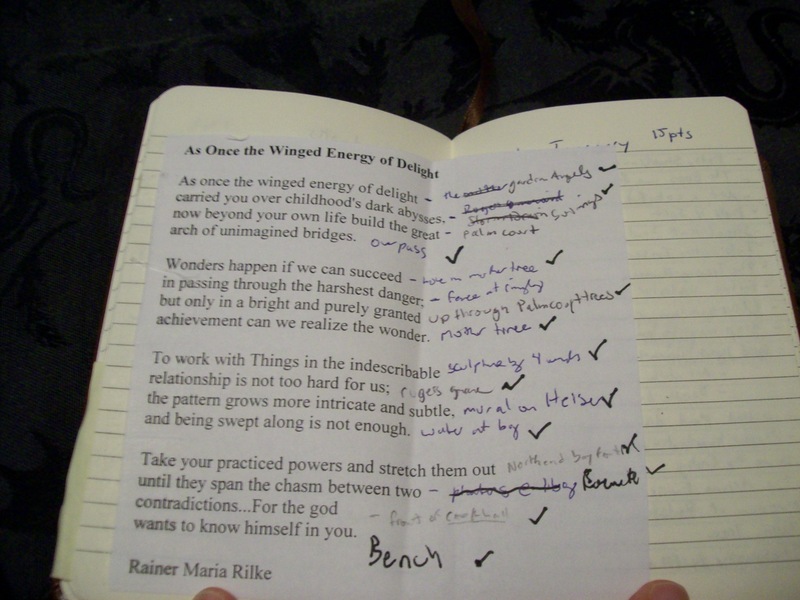 15 pts
As Once the Winged Energy of Delight
As once the winged energy of delight – the mother garden Angels ✓
carried you over childhood's dark abysses, – Swings ✓
now beyond your own life build the great – palm court
arch of unimagined bridges. ov pass ✓
Wonders happen if we can succeed – in mother tree ✓
in passing through the harshest danger; – fence at
but only in a bright and purely granted up through Palm court trees ✓
achievement can we realize the wonder. mother tree ✓
To work with Things in the indescribable sculpture by ✓
relationship is not too hard for us; ✓
the pattern grows more intricate and subtle, mural on Heiser ✓
and being swept along is not enough. water at bay ✓
Take your practiced powers and stretch them out North end bay
until they span the chasm between two – ✓
contradictions...For the god – front of ✓
wants to know himself in you.
Bench ✓
Rainer Maria Rilke